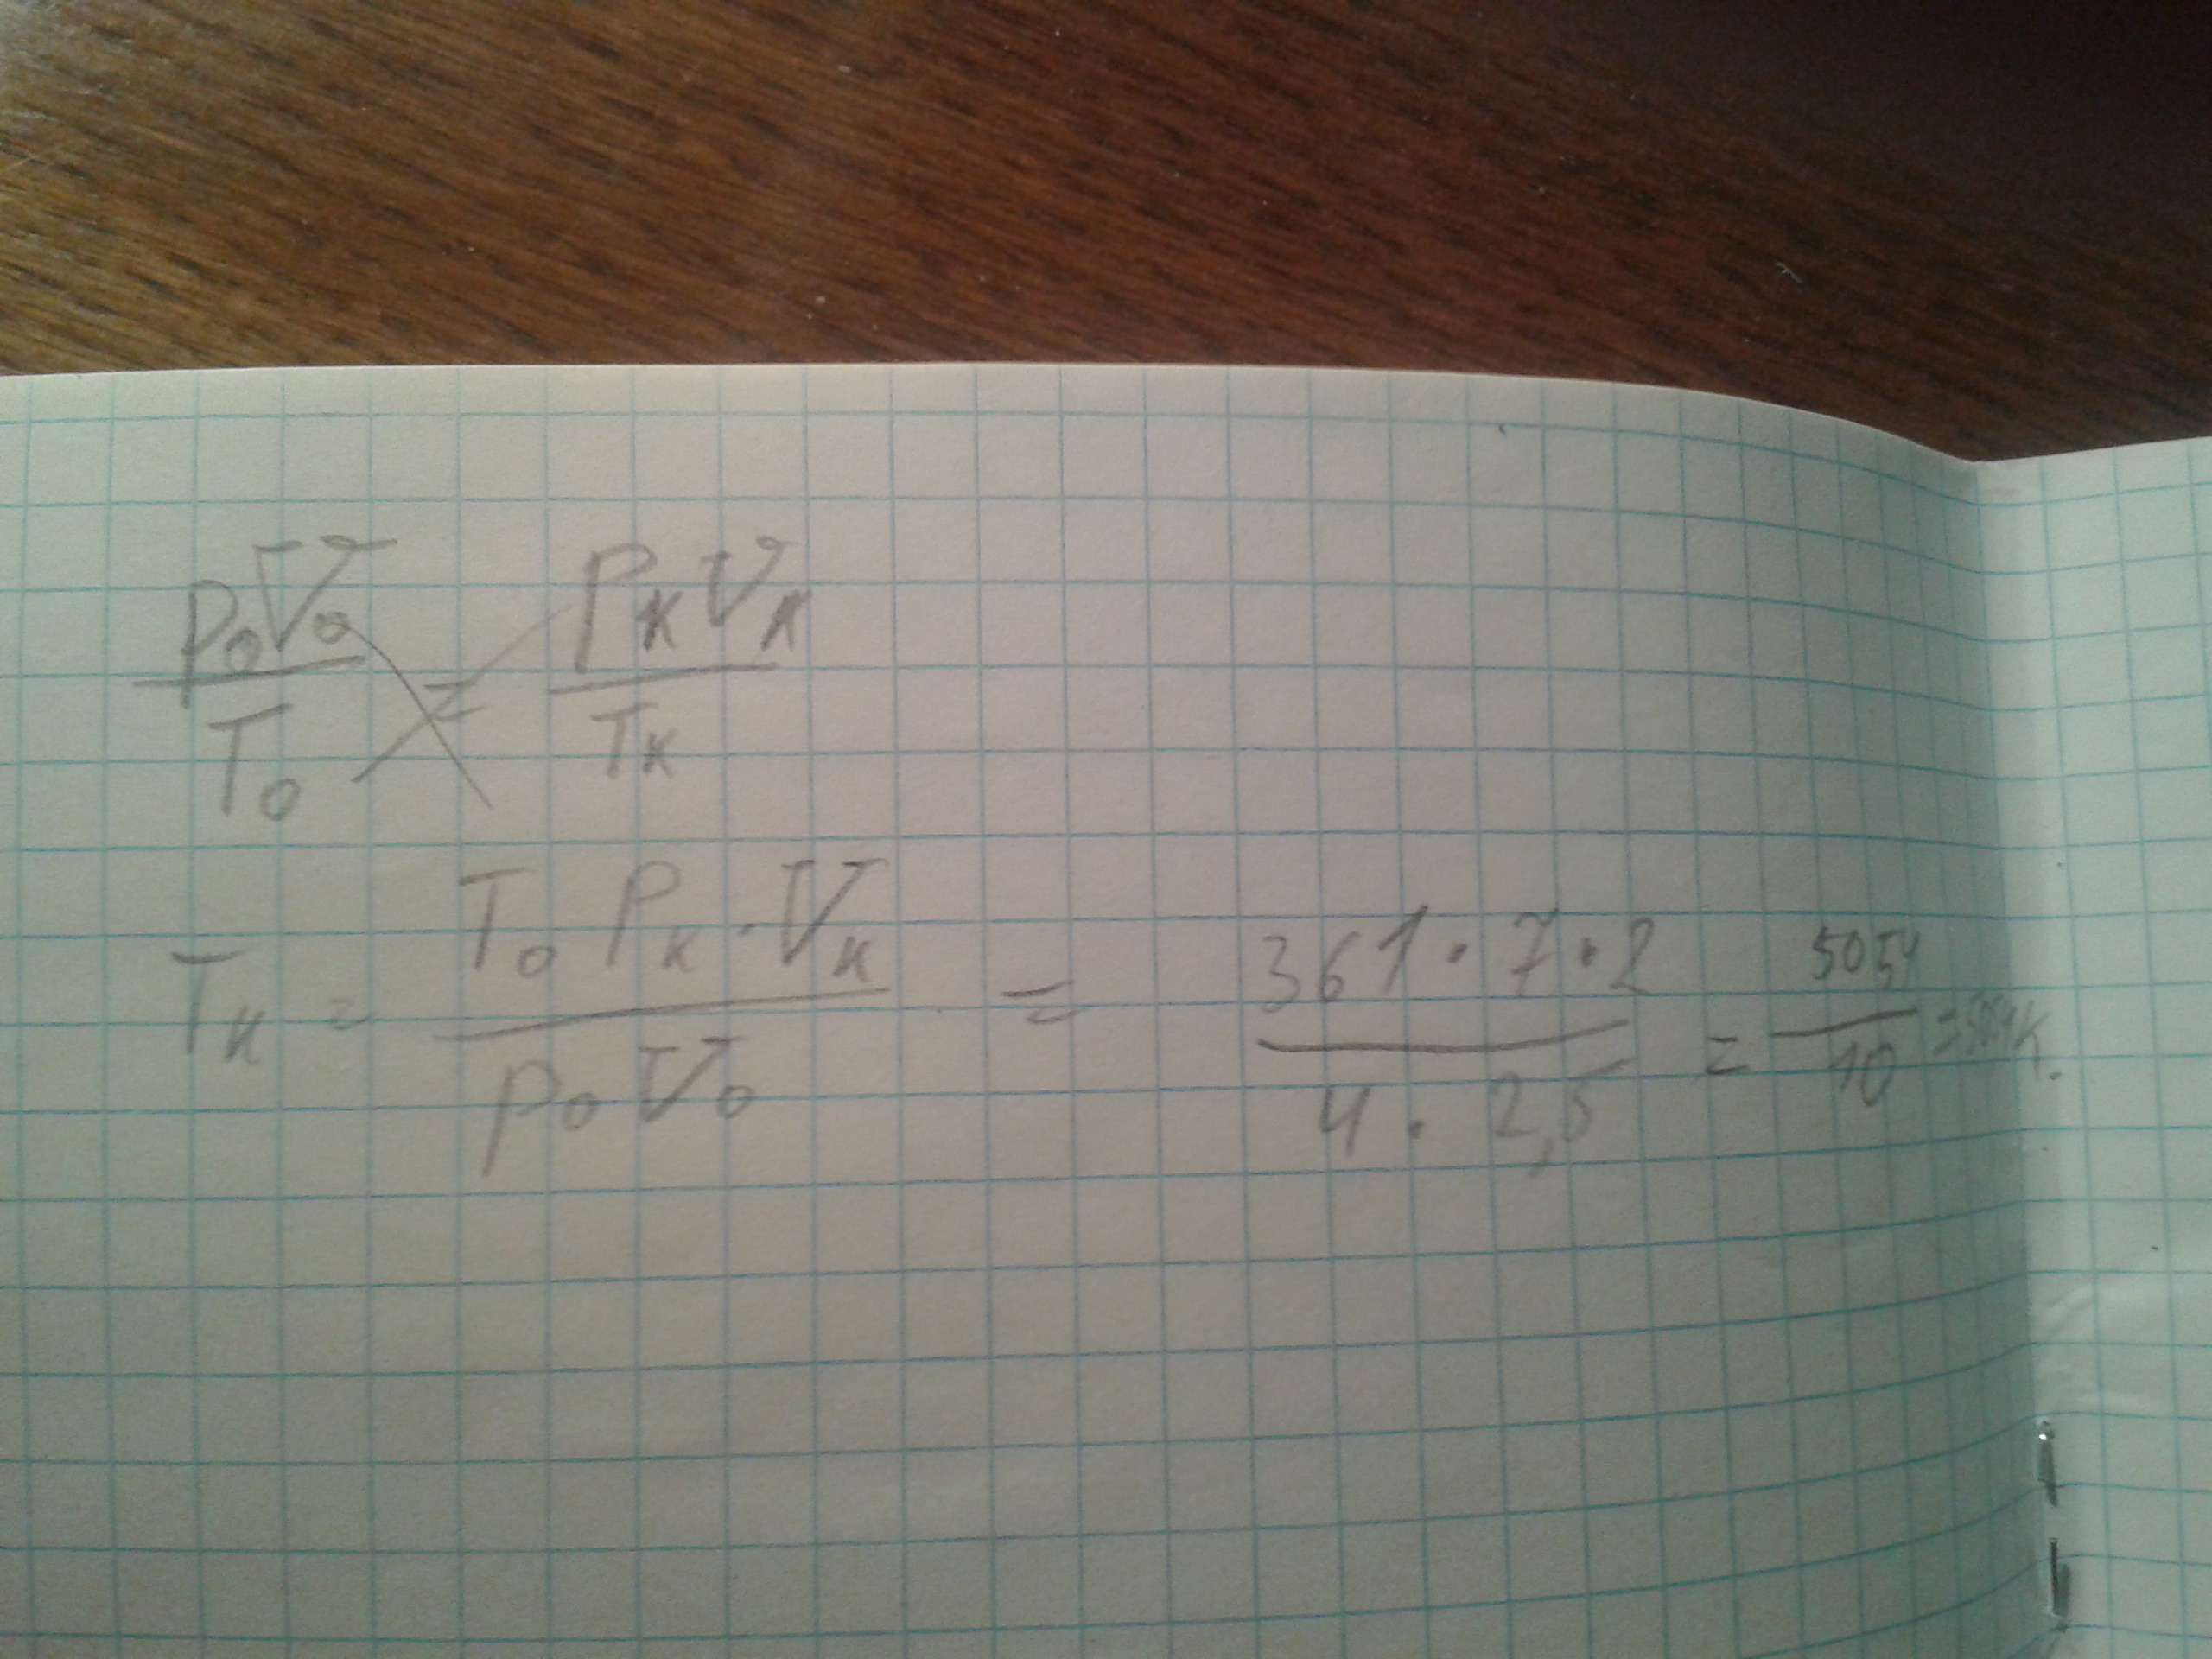 p₀V₀/T₀ = PкVк/Tк
Tк = T₀ Pк · Vк / p₀V₀ = 361 · 7 · 2 / 4 · 2,5 = 5054 / 10 =